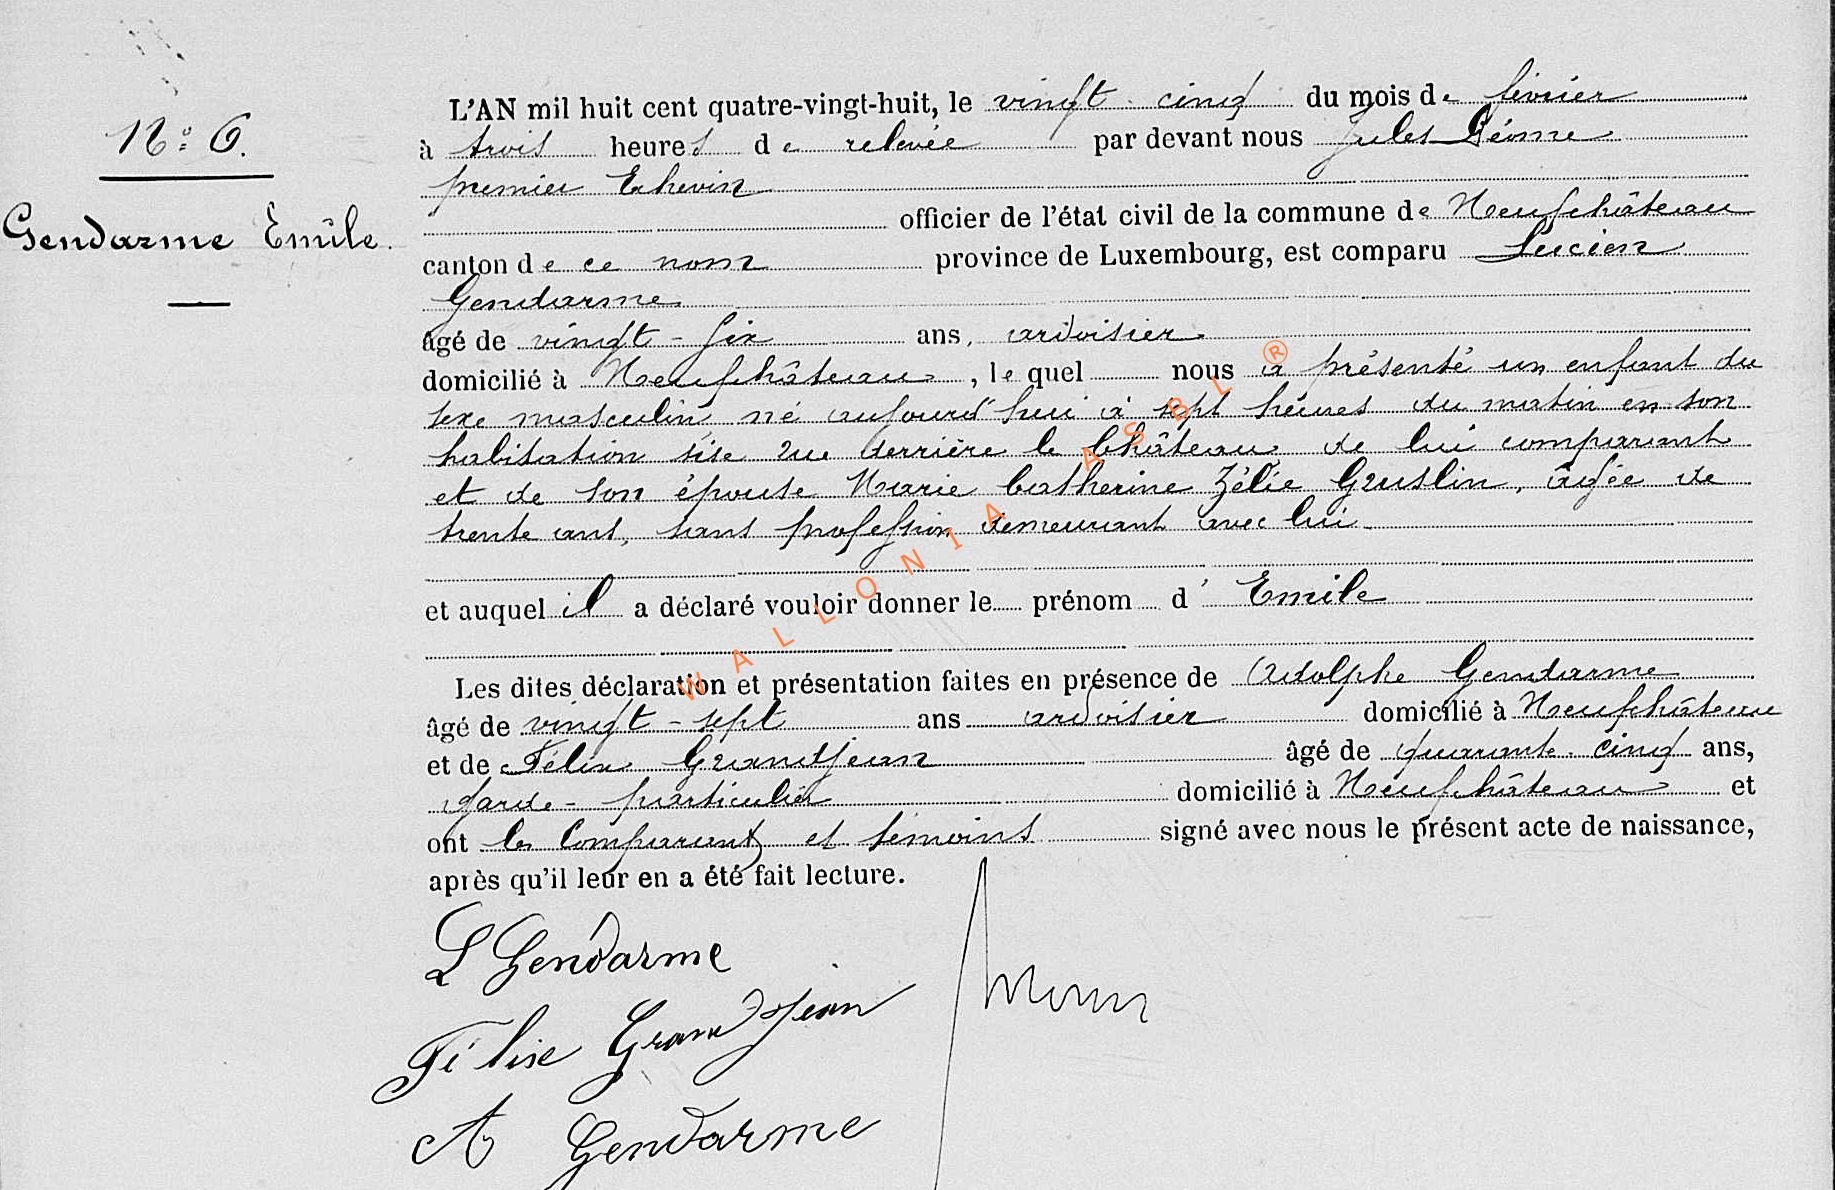 N.o 6.
Gendarme Émile.
L'AN mil huit cent quatre-vingt-huit, le vingt-cinq du mois de février
à trois heures de relevée par devant nous Jules
premier Echevin
officier de l'état civil de la commune de Neufchâteau
canton de ce nom province de Luxembourg, est comparu Lucien
Gendarme
âgé de vingt-six ans, ardoisier
domicilié à Neufchâteau, lequel nous a présenté un enfant du
sexe masculin, né aujourd'hui à sept heures du matin en son
habitation sise rue derrière le Château de lui comparant
et de son épouse Marie Catherine Zélie Guslin, âgée de
trente ans, sans profession demeurant avec lui
et auquel il a déclaré vouloir donner le prénom d'Emile
Les dites déclaration et présentation faites en présence de Adolphe Gendarme
âgé de vingt-sept ans ardoisier domicilié à Neufchâteau
et de Félix Grandjean âgé de quarante-cinq ans,
garde-particulier domicilié à Neufchâteau et
ont les comparant et témoins signé avec nous le présent acte de naissance,
après qu'il leur en a été fait lecture.
L Gendarme
Félix Grandjean
A Gendarme
WALLONIA ASBL ®